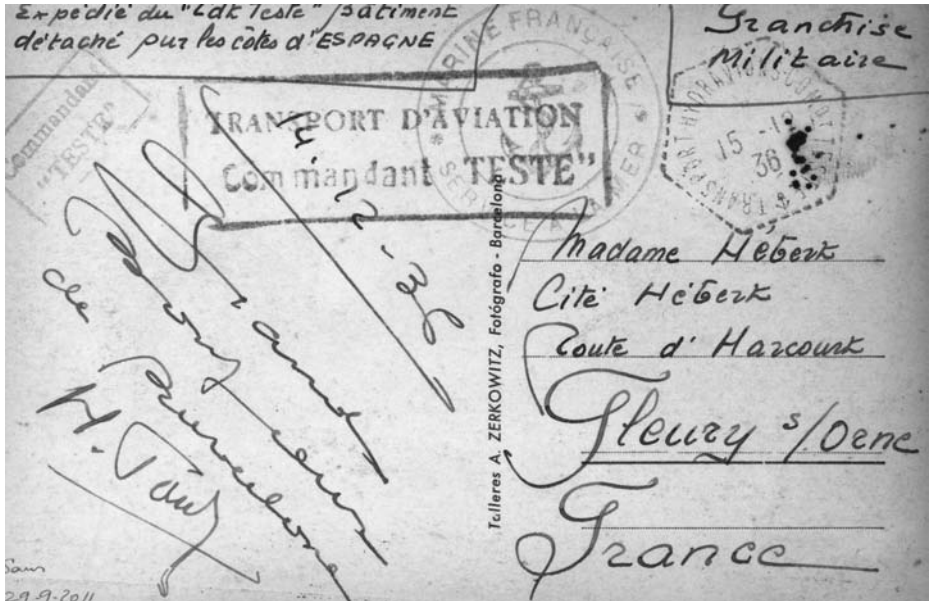 Expédié du "Cdt Teste" / Bâtiment
détaché sur les côtes d'ESPAGNE
Franchise
Militaire
Commandant
"TESTE"
MARINE FRANÇAISE
SERVICE A LA MER
TRANSPORT D'AVIATION
Commandant TESTE"
TRANSPORT HYDRAVIONS
15 -12
36
12-36
Grand
Bonjour
de Barcelone
Talleres A. ZERKOWITZ, Fotógrafo - Barcelona
Madame Hébert
Cité Hébert
Route d'Harcourt
Fleury s/Orne
France
29-9-2011